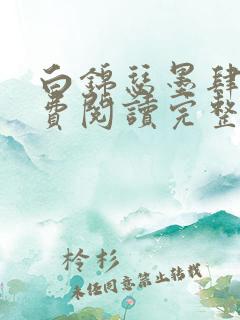 白錦瑟墨肆
費閱讀完整
柃杉
未经同意禁止转载